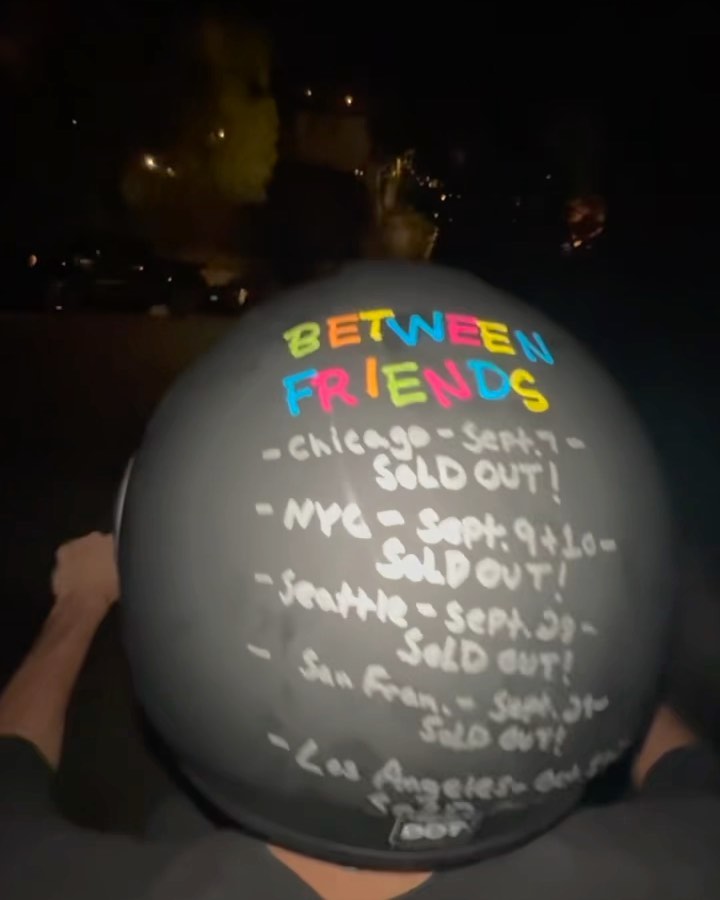 BETWEEN
FRIENDS
- Chicago - Sept. 7 -
SOLD OUT!
- NYC - Sept. 9+10 -
SOLD OUT!
- Seattle - Sept.
SOLD OUT!
- San Fran. - Sept.
SOLD OUT!
- Los Angeles -
DOT